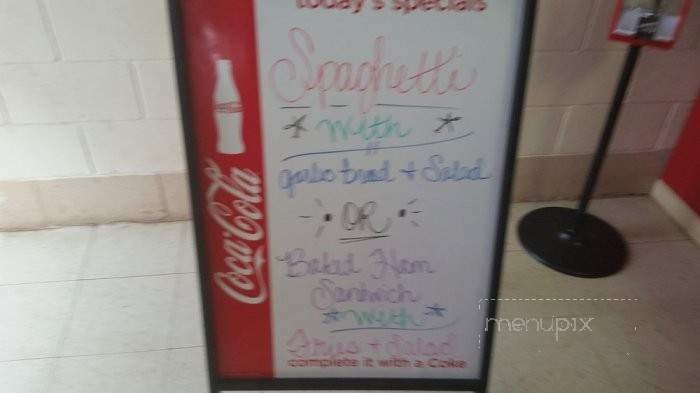 today's specials
Spaghetti
* with *
garlic bread + Salad
OR
Baked Ham
Sandwich
* with *
Fries + Salad
complete it with a Coke
Coca-Cola
menupix